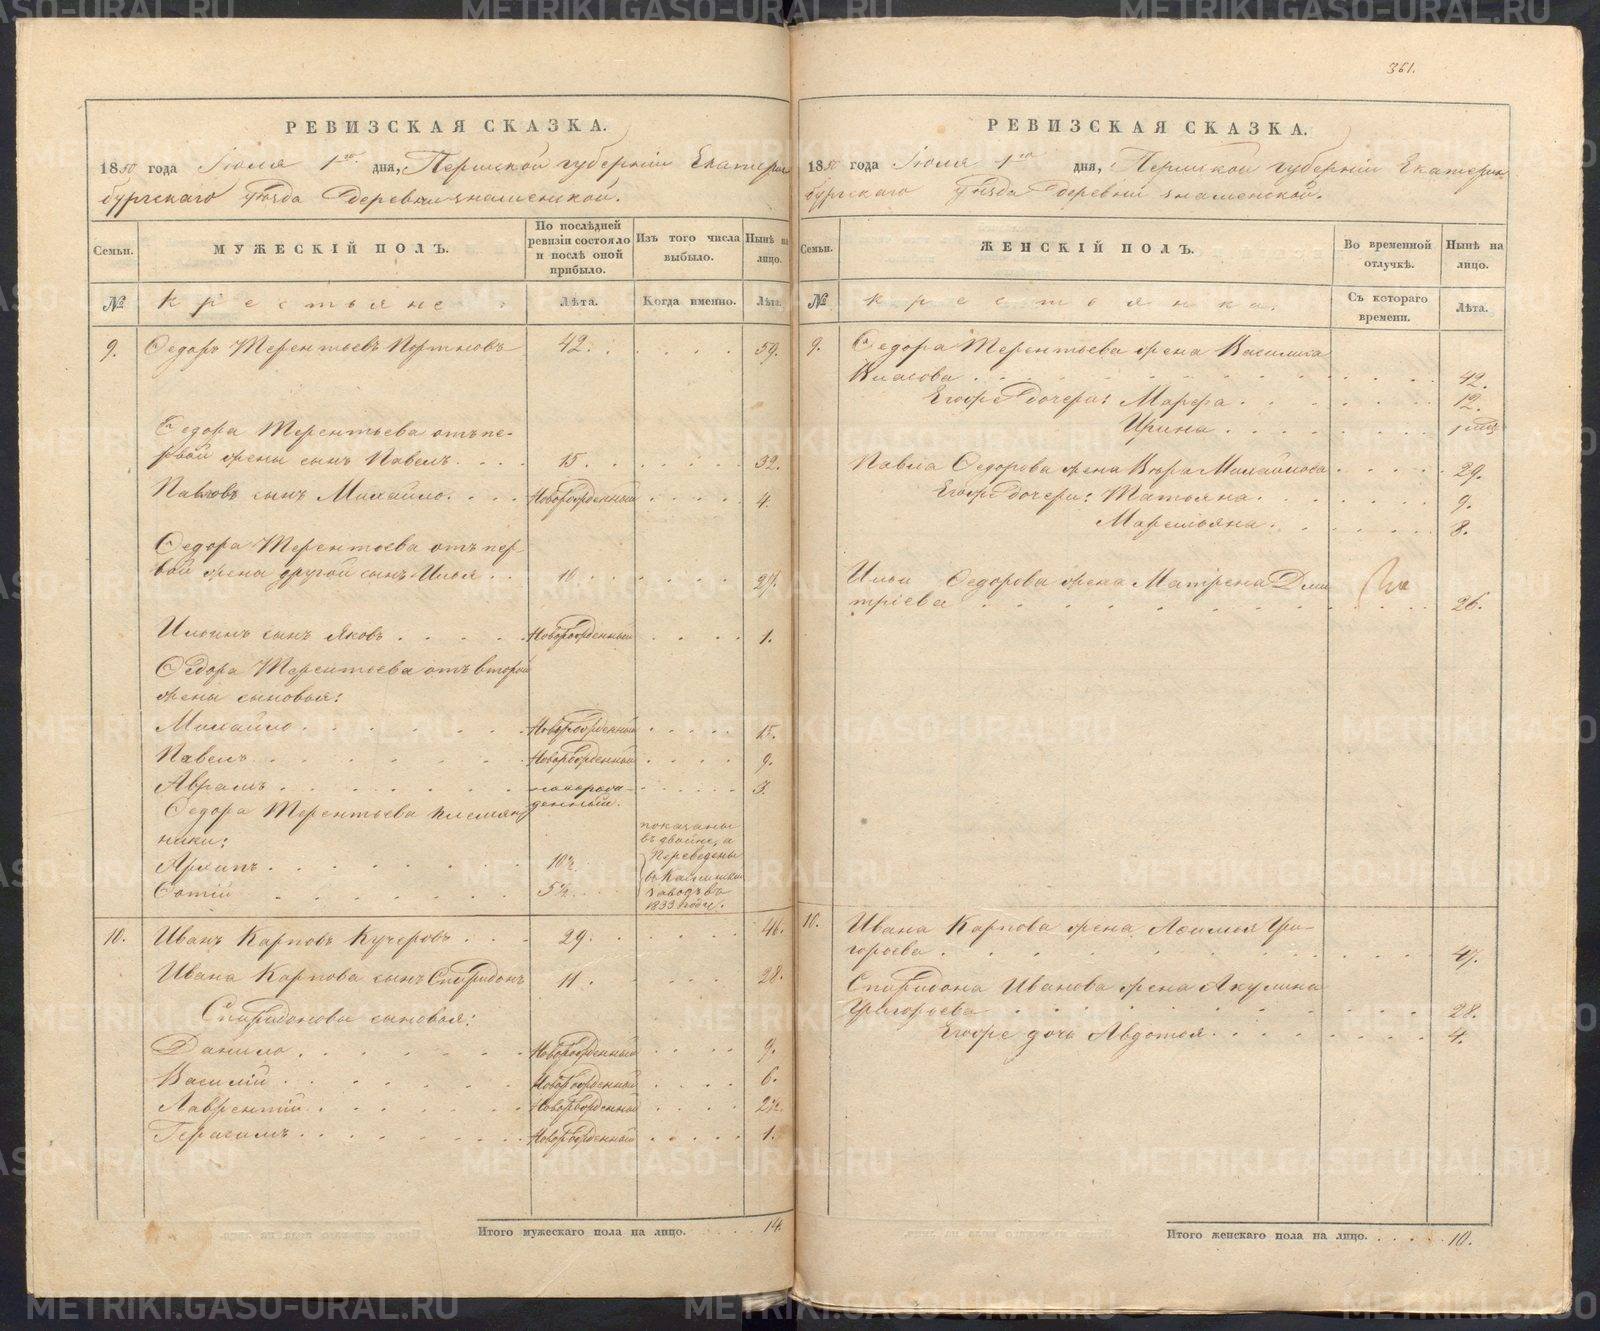 361.
РЕВИЗСКАЯ СКАЗКА.
1850 года Іюля 1го дня, Пермской губерніи Екатерин
бургскаго уѣзда деревни Знаменской.
Семьи.
МУЖЕСКІЙ ПОЛЪ.
По послѣдней
ревизіи состояло
и послѣ оной
прибыло.
Изъ того числа
выбыло.
Нынѣ на
лицо.
№
Крестьяне
Лѣта.
Когда именно.
Лѣта.
9. Федоръ Терентьевъ 42. 59.
Федора Терентьева отъ пе-
рвой жены сынъ Павелъ. 15. 32.
Павловъ сынъ Михайло. Новорожденный 4.
Федора Терентьева отъ пер-
вой жены другой сынъ Илья 10. 27.
Ильинъ сынъ Яковъ Новорожденный 1.
Федора Терентьева отъ второй
жены сыновья:
Михайло Новорожденный 15.
Павелъ Новорожденный 9.
Аврамъ новорож-
денный. 3.
Федора Терентьева племян
ники:
Архипъ 10½
Фотій 5½
показаны
въ двойнѣ, а
Переведены
въ Каслинскій
заводъ въ
1833 году.
10. Иванъ Карповъ Кучеровъ 29. 46.
Ивана Карпова сынъ Спиридонъ 11. 28.
Спиридоновы сыновья:
Данило Новорожденный 9.
Василій Новорожденный 6.
Лаврентій Новорожденный 2½.
Герасимъ Новорожденный 1.
Итого мужескаго пола на лицо. 14.
РЕВИЗСКАЯ СКАЗКА.
1850 года Іюля 1го дня, Пермской губерніи Екатерин
бургскаго уѣзда деревни Знаменской.
Семьи.
ЖЕНСКІЙ ПОЛЪ.
Во временной
отлучкѣ.
Нынѣ на
лицо.
№
Крестьянка.
Съ котораго
времени.
Лѣта.
9. Федора Терентьева жена Василиса
Власова 42.
Егожъ дочери: Марфа 12.
Ирина 1
Павла Федорова жена Вѣра Михайлова 29.
Егожъ дочери: Татьяна 9.
Маремьяна 8.
Ильи Федорова жена Матрена Дми
тріева 26.
10. Ивана Карпова жена Афимья Гри-
горьева 47.
Спиридона Иванова жена Акулина
Григорьева 28.
Егожъ дочь Авдотья 4.
Итого женскаго пола на лицо. 10.
METRIKI.GASO-URAL.RU